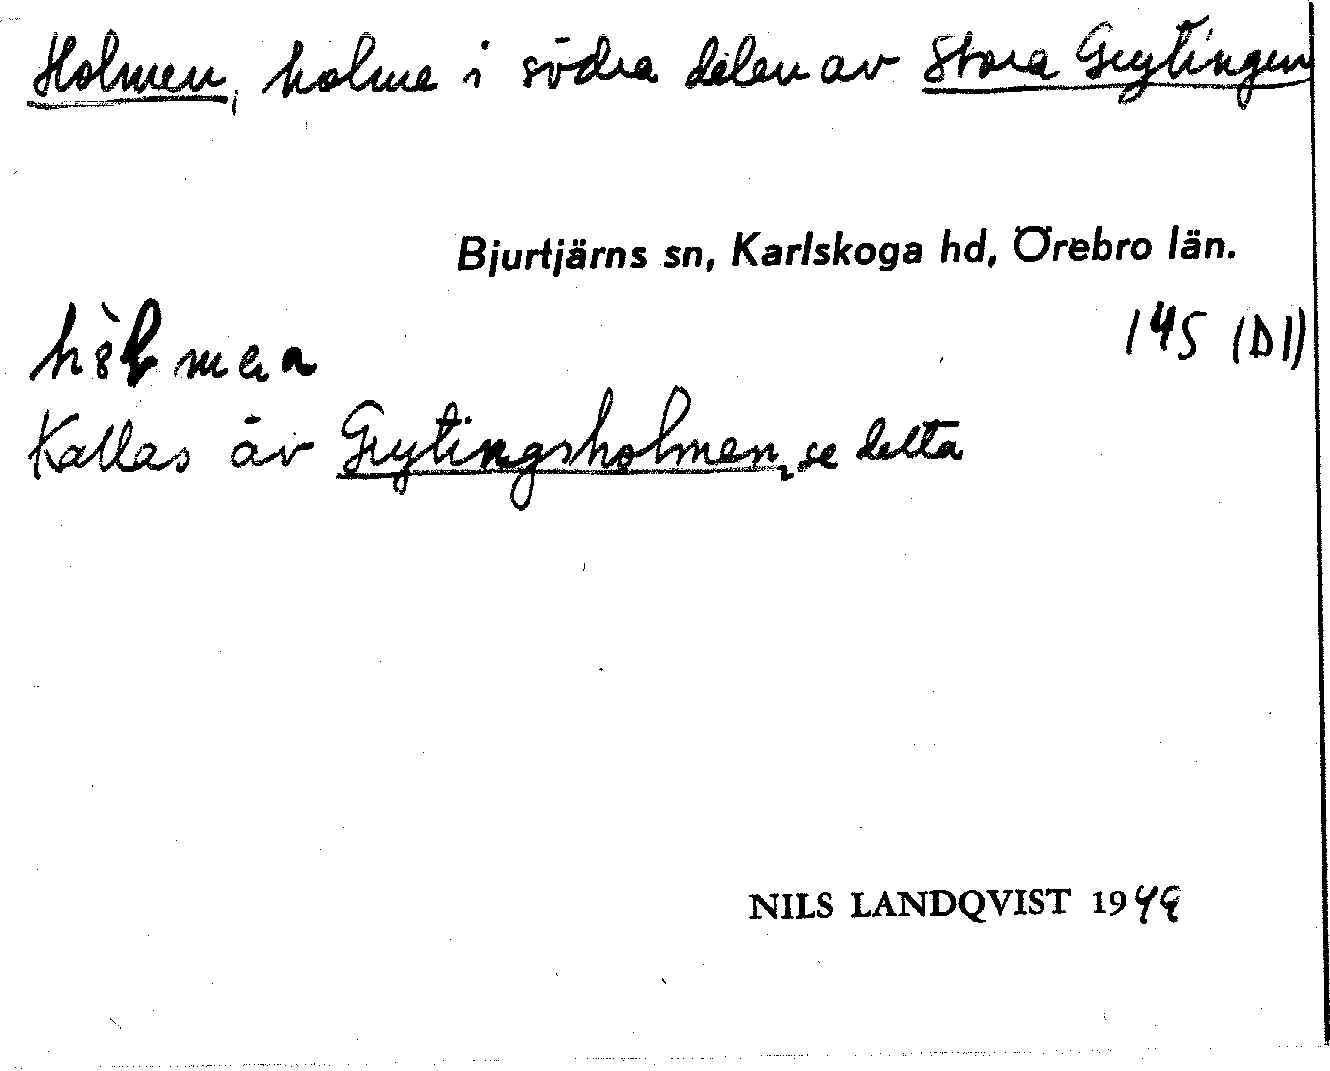 Holmen, holme i södra delen av Stora Grytingen
Bjurtjärns sn, Karlskoga hd, Örebro län.
145 (D1)
Kallas äv Grytingsholmen, se detta
NILS LANDQVIST 1949